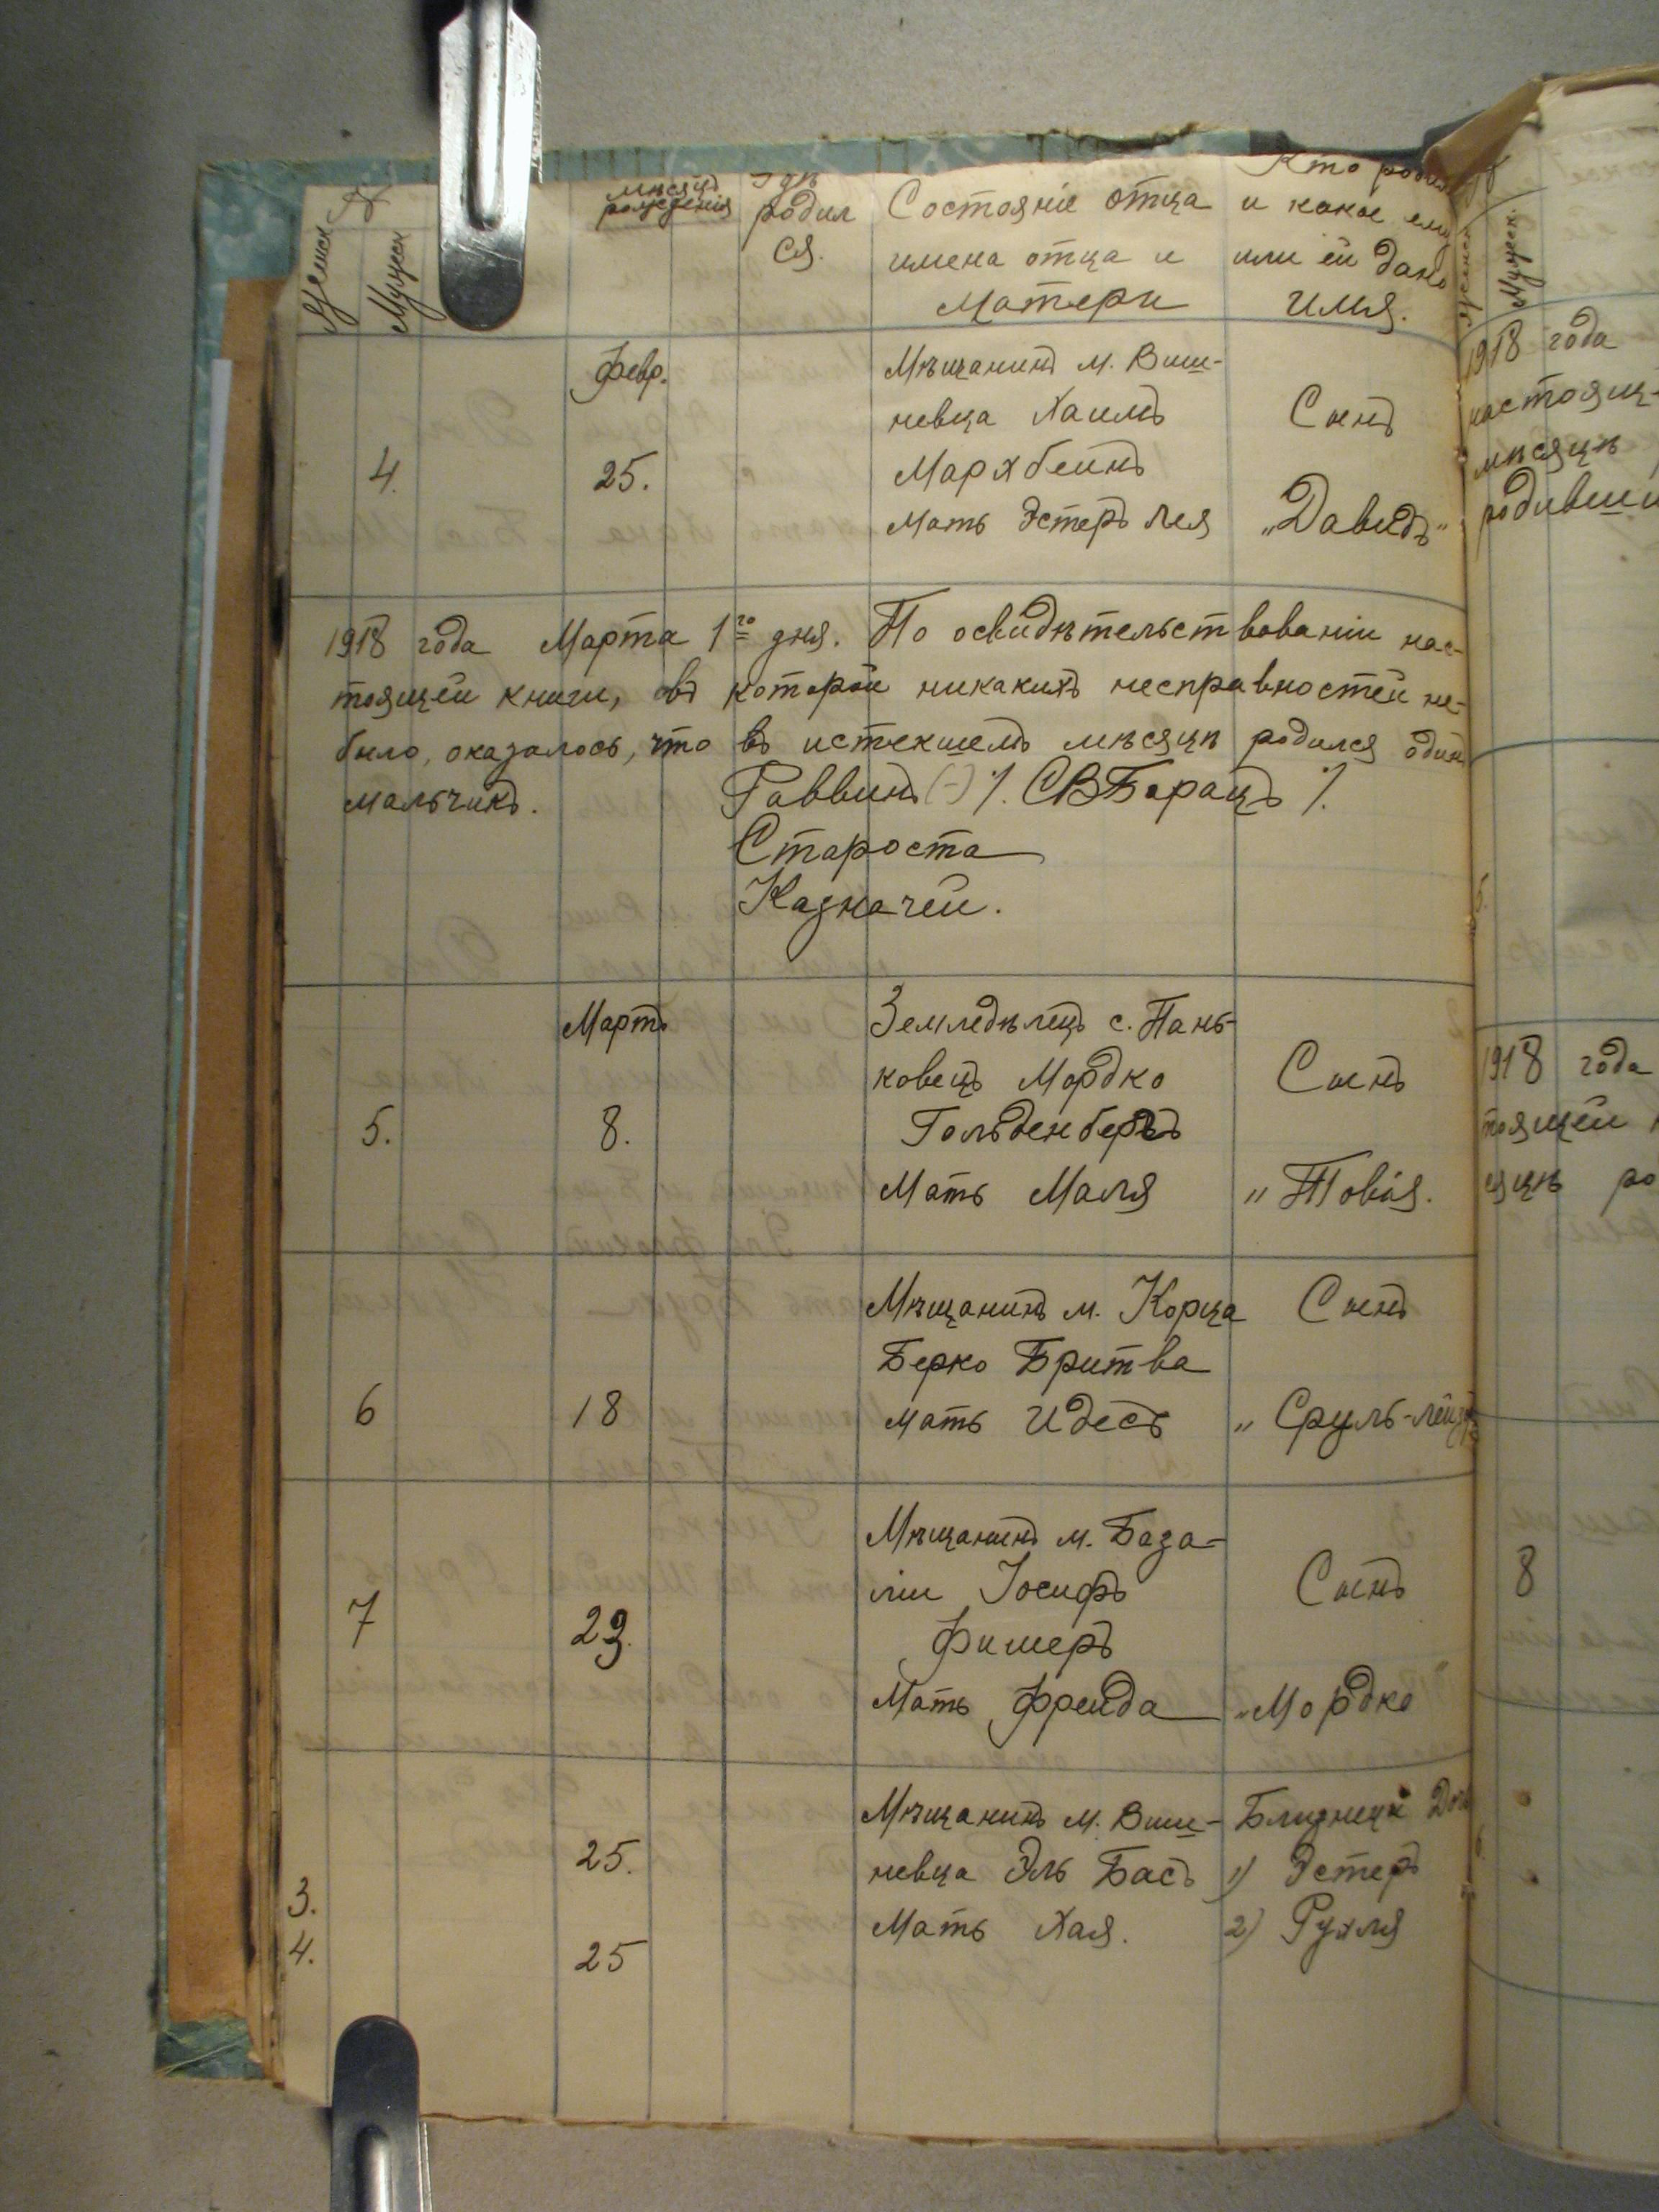 №
Женск
Мужеск
мѣсяцъ рожденія
Гдѣ родил ся.
Состояніе отца имена отца и матери
Кто родил и какое ему или ей дано имя.
Февр.
4. 25.
Мѣщанинъ м. Виш-
невца Хаимъ
Мархбейнъ
Мать Эстеръ Лея
Сынъ
„Давидъ"
1918 года Марта 1го дня. По освидѣтельствованіи нас-
тоящей книги, въ которой никакихъ несправностей не-
было, оказалось, что въ истекшемъ мѣсяцѣ родился один
мальчикъ. Раввинъ (-) /. СВБарацъ /.
Староста
Казначей.
Мартъ
5. 8.
Земледѣлецъ с. Пань-
ковецъ Мордко
Гольденбергъ
Мать Маля
Сынъ
„Товія.
6 18
Мѣщанинъ м. Корца
Берко Бритва
Мать Идесъ
Сынъ
„Сруль-Лейзр
7 23.
Мѣщанинъ м. База-
ліи Іосифъ
Фишеръ
Мать Фрейда
Сынъ
„Мордко
3. 25.
4. 25
Мѣщанинъ м. Виш-
невца Эль Басъ
Мать Хая.
Близнецы Доч
1) Эстеръ
2) Рухля
Мужеск.
1918 года
настоящ-
мѣсяцѣ
родивши
5.
1918 года
тоящей
яцѣ ро
8